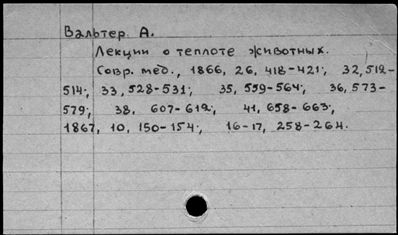 Вальтер А.
Лекции о теплоте животных.
Совр. мед., 1866, 26, 418-421; 32, 512-
514; 33, 528-531; 35, 559-564; 36, 573-
579; 38, 607-612; 41, 658-663;
1867, 10, 150-154; 16-17, 258-264.